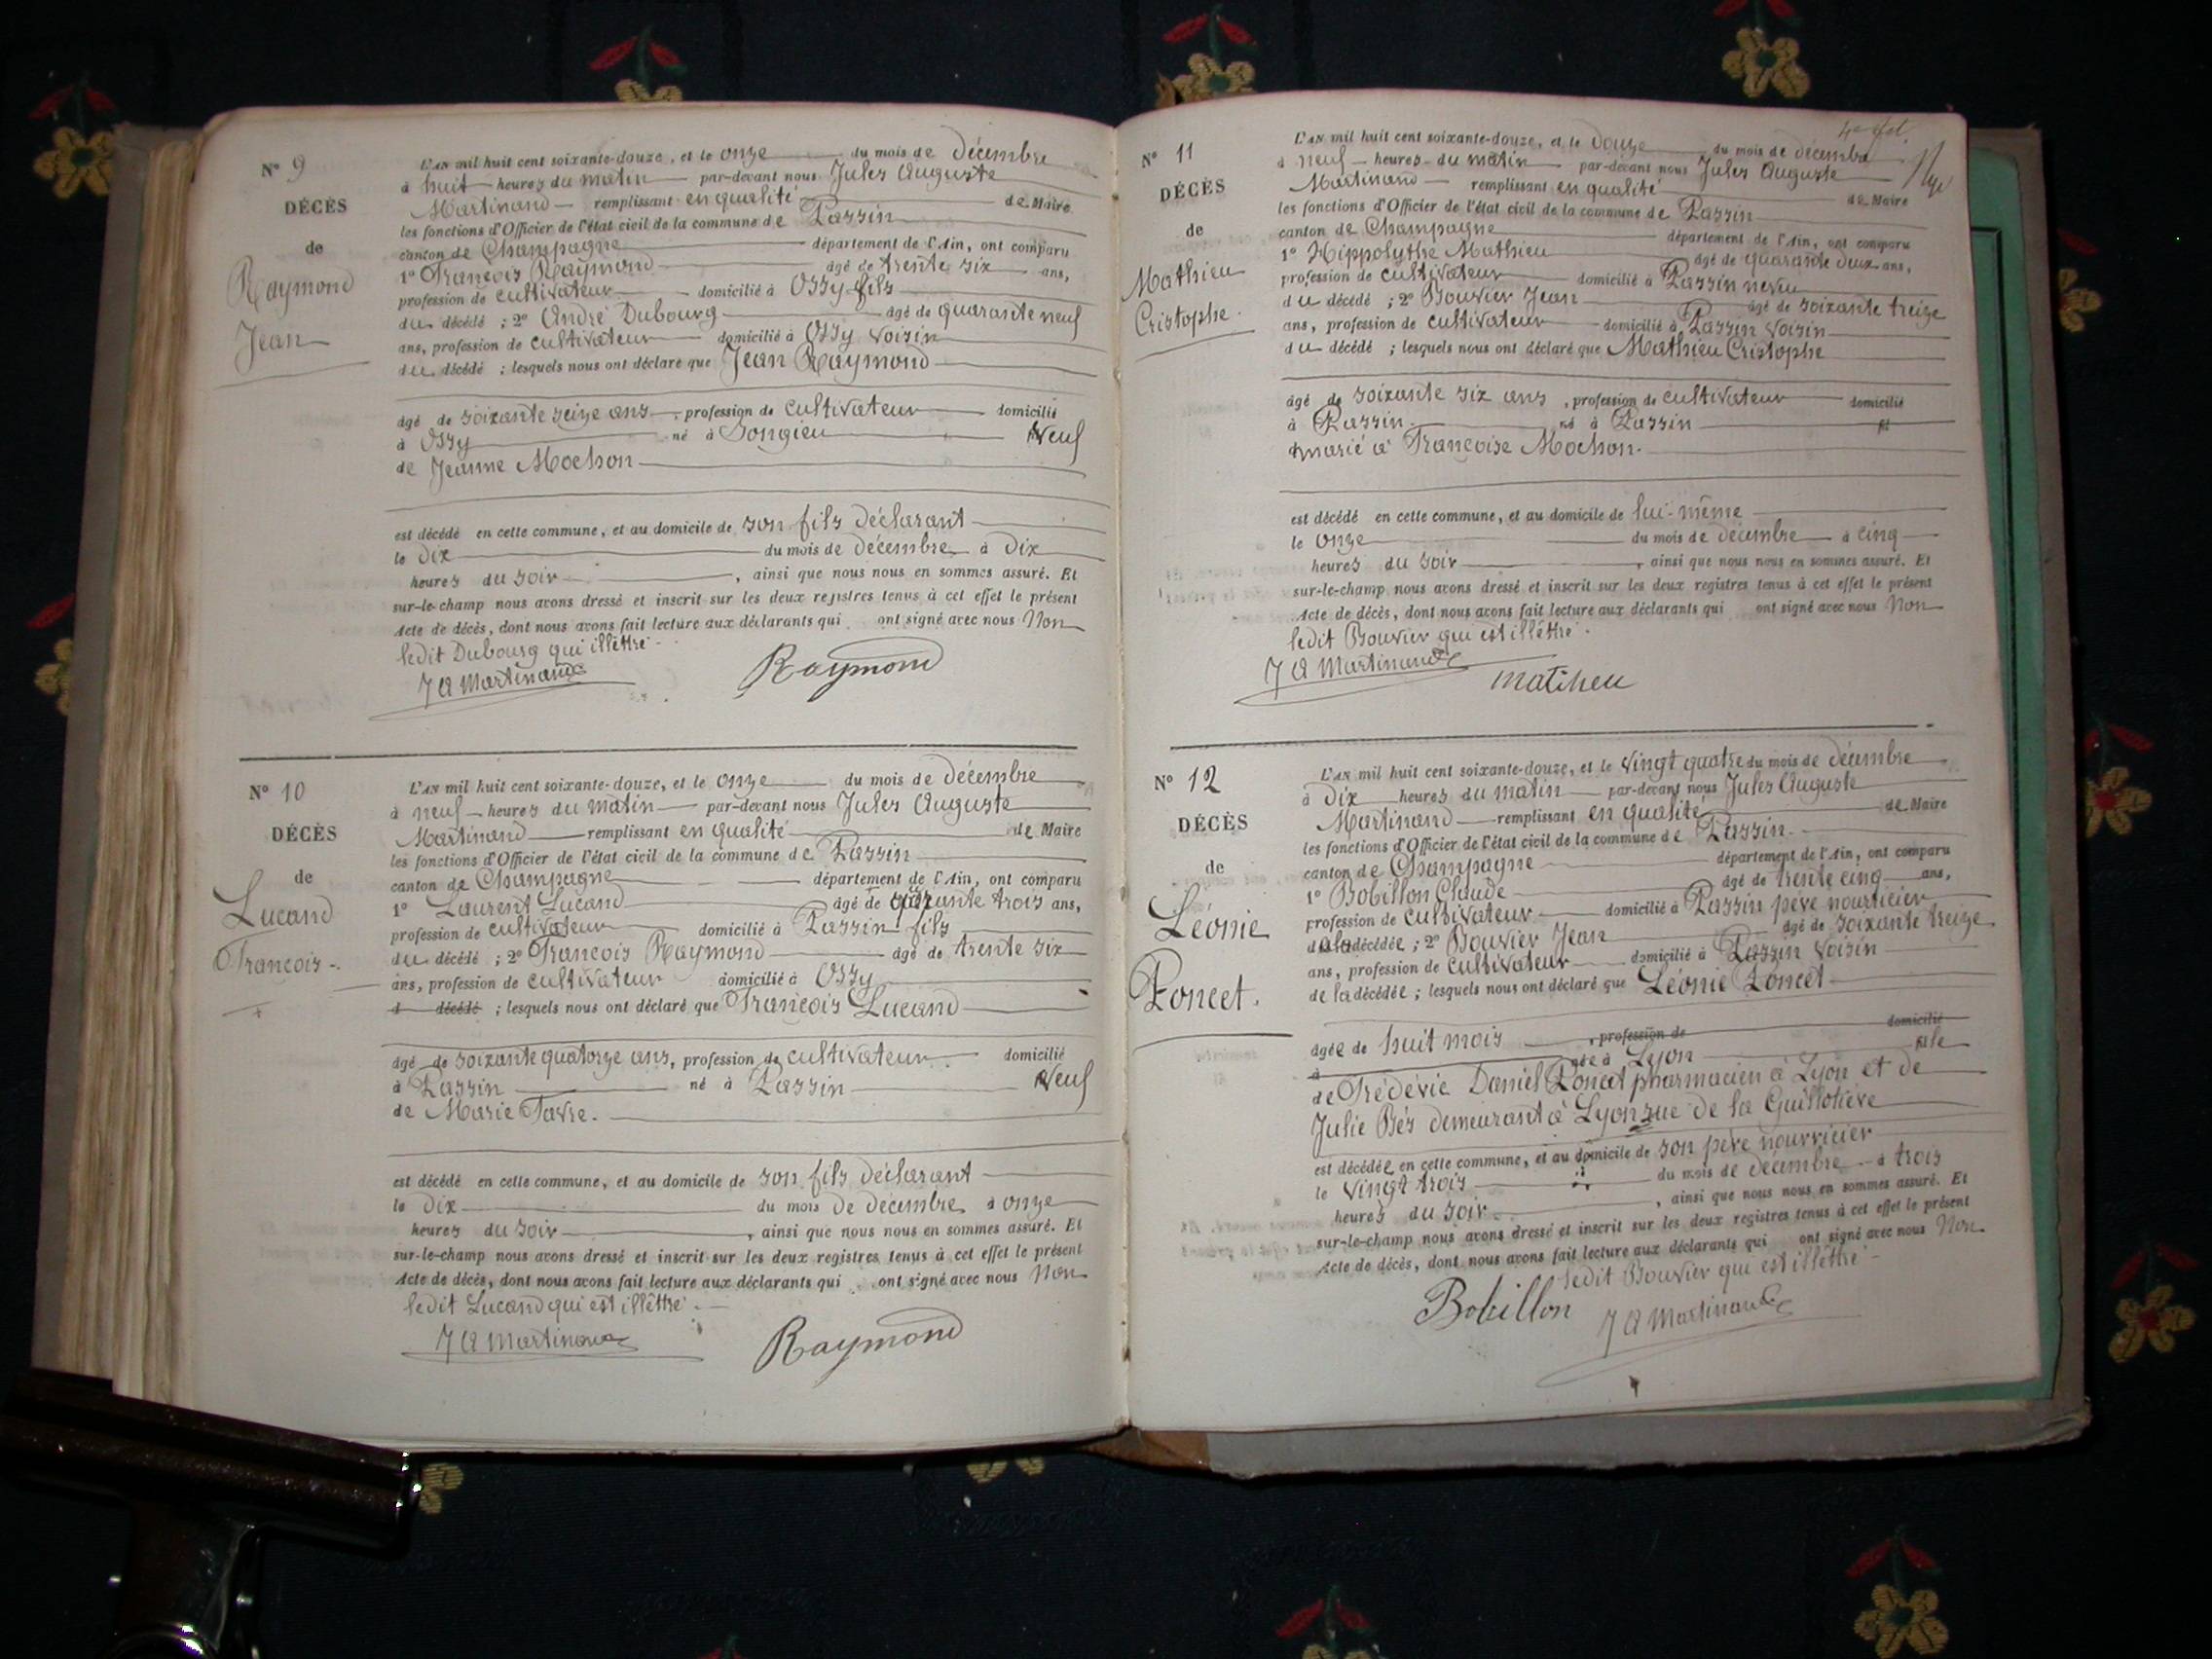 N° 9
DÉCÈS
de
Raymond
Jean
L'AN mil huit cent soixante-douze, et le onze du mois de décembre
à huit heures du matin par-devant nous Jules Auguste
Martinand remplissant en qualité de Maire
les fonctions d'Officier de l'état civil de la commune de Passin
canton de Champagne département de l'Ain, ont comparu
1° François Raymond âgé de trente six ans,
profession de cultivateur domicilié à Ossy fils
du décédé ; 2° André Dubourg âgé de quarante neuf
ans, profession de cultivateur domicilié à Ossy voisin
du décédé ; lesquels nous ont déclaré que Jean Raymond
âgé de soixante seize ans, profession de cultivateur domicilié
à Ossy né à Songieu Veuf
de Jeanne Mochon
est décédé en cette commune, et au domicile de son fils déclarant
le dix du mois de décembre à dix
heures du soir, ainsi que nous nous en sommes assuré. Et
sur-le-champ nous avons dressé et inscrit sur les deux registres tenus à cet effet le présent
Acte de décès, dont nous avons fait lecture aux déclarants qui ont signé avec nous Non
ledit Dubourg qui illêttré
J A Martinand Raymond
N° 10
DÉCÈS
de
Lucand
François
L'AN mil huit cent soixante-douze, et le onze du mois de décembre
à neuf heures du matin par-devant nous Jules Auguste
Martinand remplissant en qualité de Maire
les fonctions d'Officier de l'état civil de la commune de Passin
canton de Champagne département de l'Ain, ont comparu
1° Laurent Lucand âgé de trois ans,
profession de cultivateur domicilié à Passin fils
du décédé ; 2° François Raymond âgé de trente six
ans, profession de cultivateur domicilié à Ossy
d décédé ; lesquels nous ont déclaré que François Lucand
âgé de soixante quatorze ans, profession de cultivateur domicilié
à Passin né à Passin Veuf
de Marie Favre.
est décédé en cette commune, et au domicile de son fils déclarant
le dix du mois de décembre à onze
heures du soir, ainsi que nous nous en sommes assuré. Et
sur-le-champ nous avons dressé et inscrit sur les deux registres tenus à cet effet le présent
Acte de décès, dont nous avons fait lecture aux déclarants qui ont signé avec nous Non
ledit Lucand qui est illêttré
J A Martinand Raymond
N° 11
DÉCÈS
de
Mathieu
Cristophe.
L'AN mil huit cent soixante-douze, et le douze du mois de décembre
à neuf heures du matin par-devant nous Jules Auguste
Martinand remplissant en qualité de Maire
les fonctions d'Officier de l'état civil de la commune de Passin
canton de Champagne département de l'Ain, ont comparu
1° Hippolythe Mathieu âgé de quarante deux ans,
profession de cultivateur domicilié à Passin neveu
du décédé ; 2° Bouvier Jean âgé de soixante treize
ans, profession de cultivateur domicilié à Passin voisin
du décédé ; lesquels nous ont déclaré que Mathieu Cristophe
âgé de soixante six ans, profession de cultivateur domicilié
à Passin né à Passin fil
marié à Françoise Mochon.
est décédé en cette commune, et au domicile de lui-même
le onze du mois de décembre à cinq
heures du soir, ainsi que nous nous en sommes assuré. Et
sur-le-champ nous avons dressé et inscrit sur les deux registres tenus à cet effet le présent
Acte de décès, dont nous avons fait lecture aux déclarants qui ont signé avec nous Non
ledit Bouvier qui est illêttré.
J A Martinand mathieu
N° 12
DÉCÈS
de
Léonie
Poncet.
L'AN mil huit cent soixante-douze, et le vingt quatre du mois de décembre
à dix heures du matin par-devant nous Jules Auguste
Martinand remplissant en qualité de Maire
les fonctions d'Officier de l'état civil de la commune de Passin
canton de Champagne département de l'Ain, ont comparu
1° Bobillon Claude âgé de trente cinq ans,
profession de cultivateur domicilié à Passin père nourricier
de la décédée ; 2° Bouvier Jean âgé de soixante treize
ans, profession de cultivateur domicilié à Passin voisin
de la décédée ; lesquels nous ont déclaré que Léonie Poncet
âgée de huit mois, profession de domicilié
à née à Lyon fille
de Frédévic Daniel Poncet pharmacien à Lyon et de
Julie Bés demeurant à Lyon rue de la Guillotière
est décédée en cette commune, et au domicile de son père nourricier
le vingt trois du mois de décembre à trois
heures du soir, ainsi que nous nous en sommes assuré. Et
sur-le-champ nous avons dressé et inscrit sur les deux registres tenus à cet effet le présent
Acte de décès, dont nous avons fait lecture aux déclarants qui ont signé avec nous Non
ledit Bouvier qui est illêttré
Bobillon J A Martinand